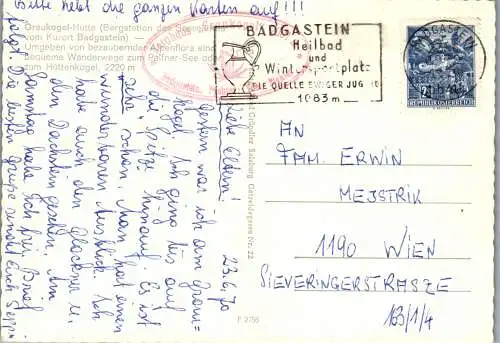 Bitte hebt die ganzen Karten auf!!!
Graukogel-Hütte (Bergstation des
von Kurort Badgastein)
Umgeben von bezaubernder Alpenflora
Bequeme Wanderwege zum Palfner-See oder
zum Hüttenkogel, 2220 m
BADGASTEIN
Heilbad
und
Wintersportplatz
DIE QUELLE EWIGER JUGEND
1083 m
BADGASTEIN
REPUBLIK ÖSTERREICH
23.6.70
Liebe Eltern!
Gestern war ich am Grau=
kogel. Ich ging bis auf
die Spitze hinauf. Es ist
sehr schön. Man hat einen
wunderbaren Ausblick. Ich
habe auch den Glockner u.
den Dachstein gesehen. Am
Samstag habe ich frei. Brief
folgt. Die besten Grüße sendet Euch Sepp.
Cosy-Verlag Salzburg Getreidegasse Nr. 22
F 2756
AN
FAM. ERWIN
MEJSTRIK
1190 WIEN
SIEVERINGERSTRASZE
163/1/4